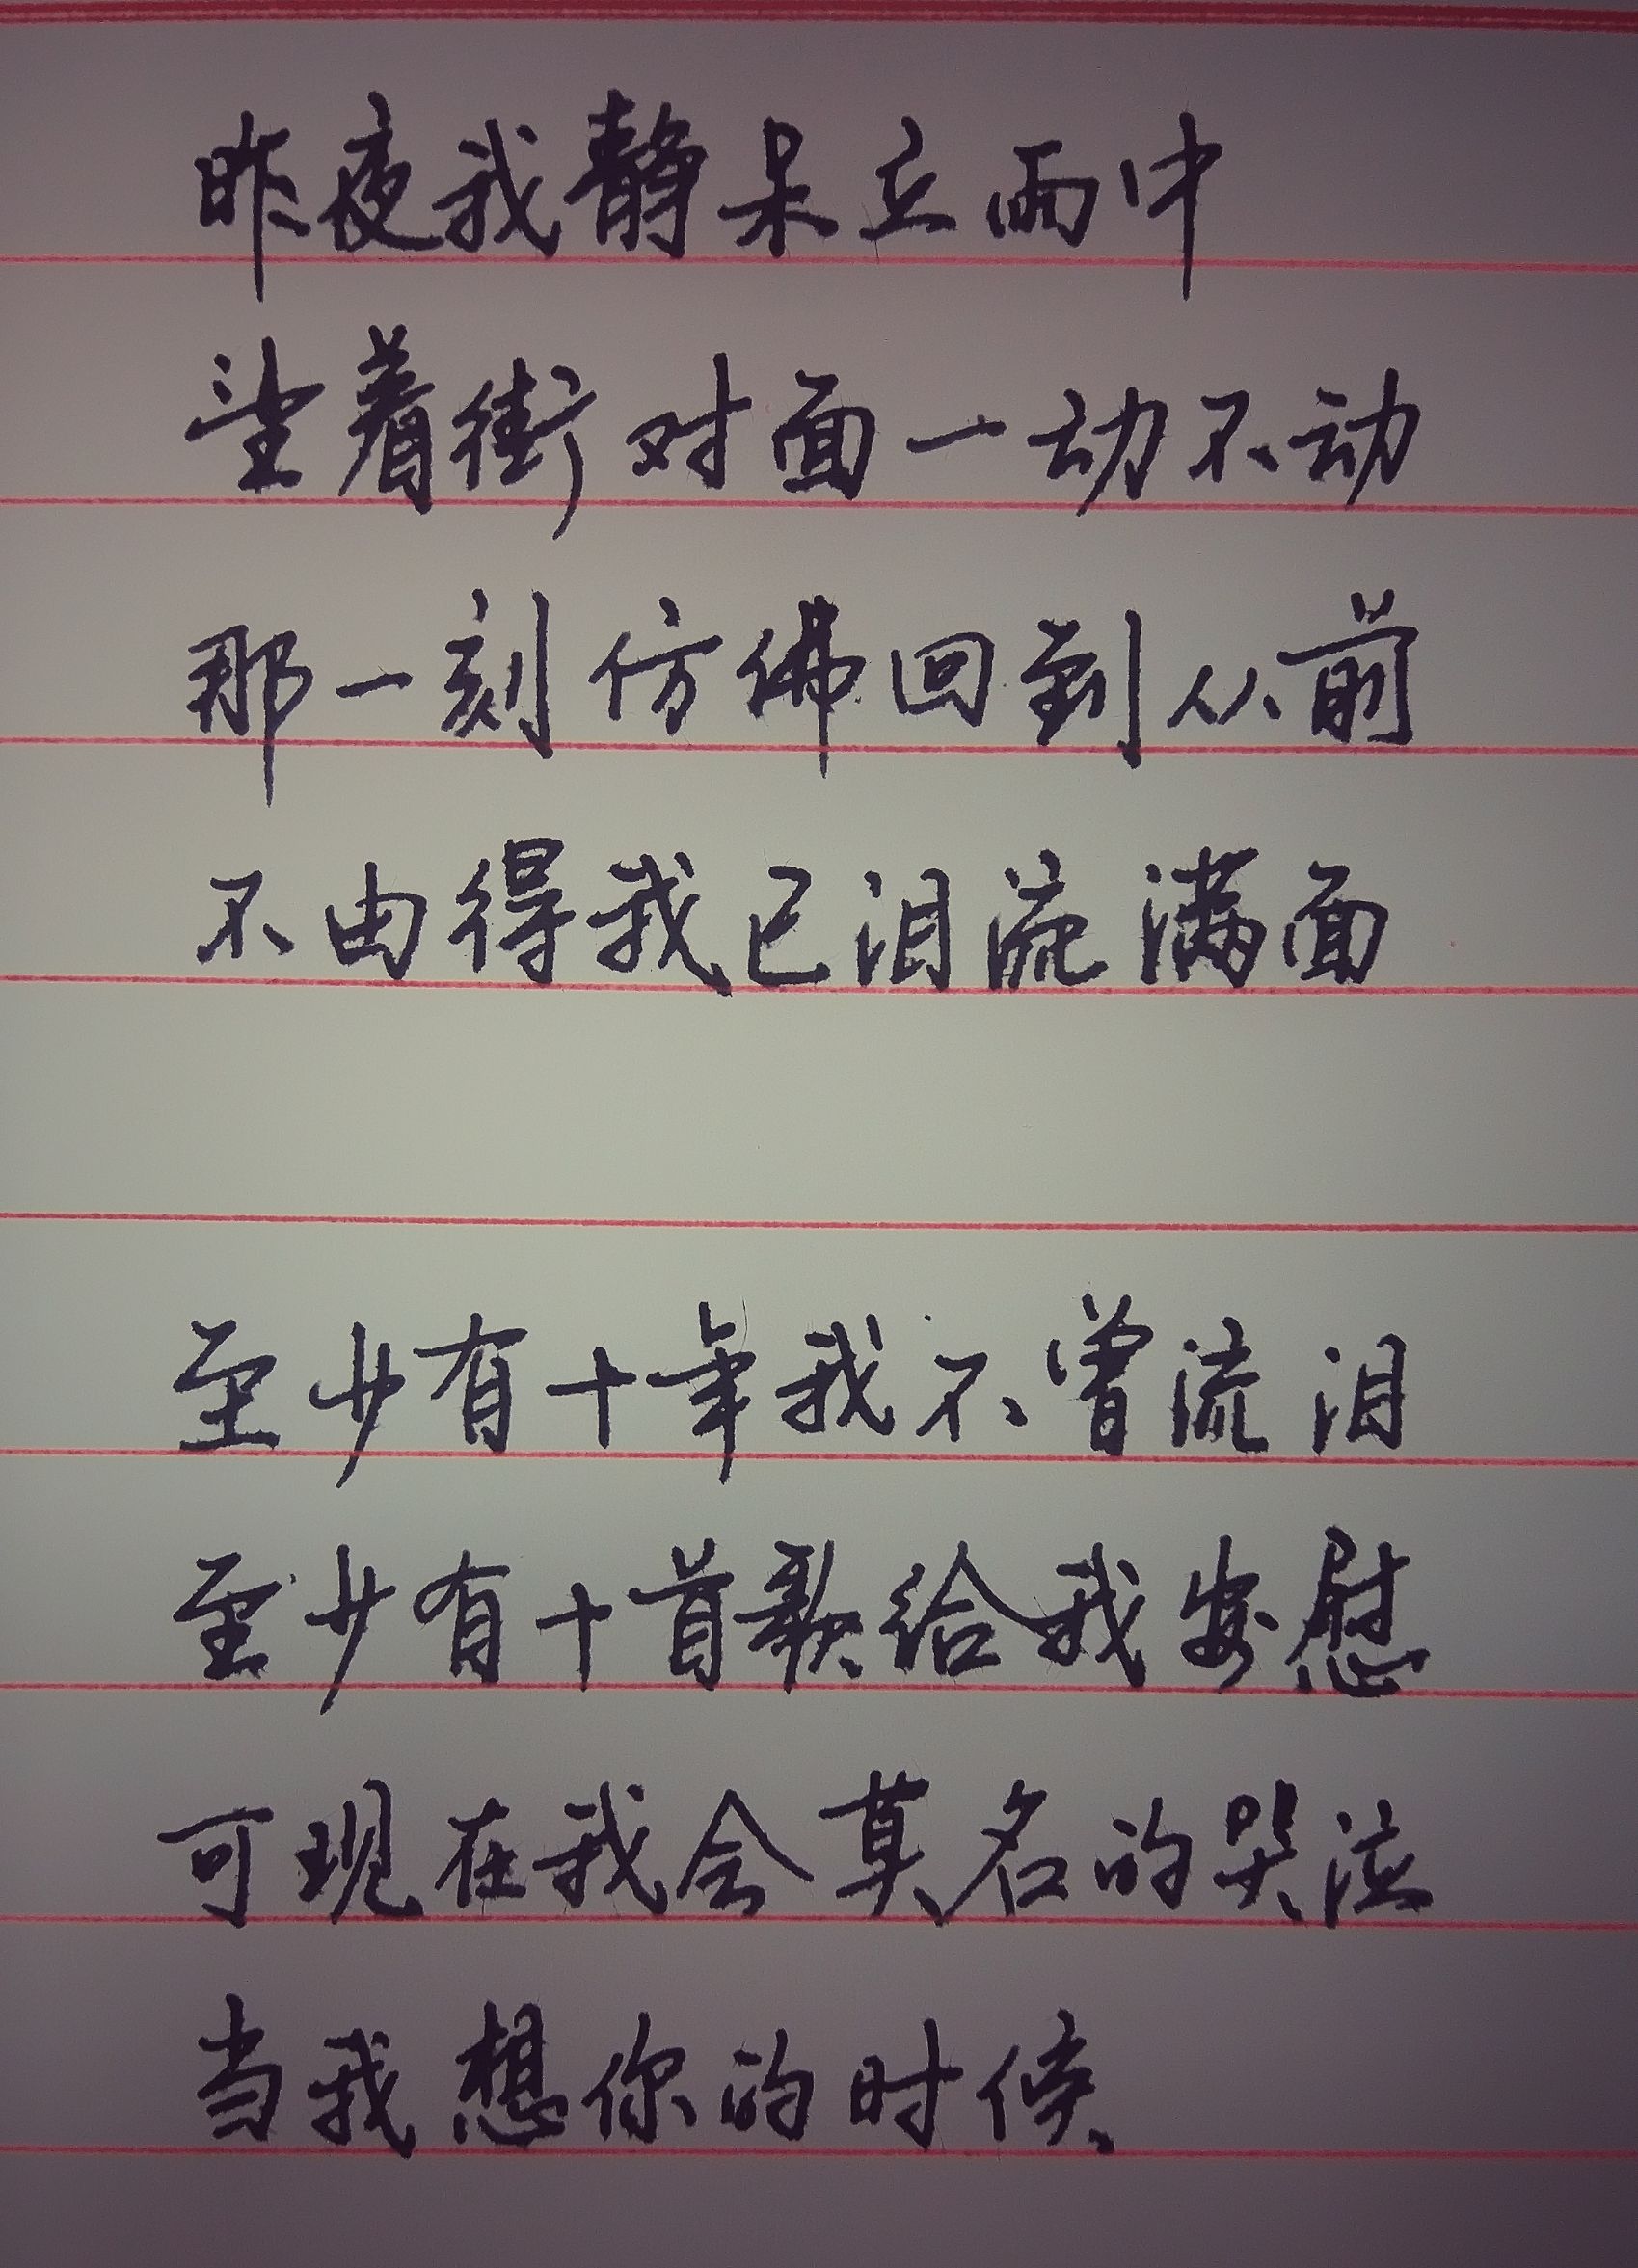 昨夜我静呆立雨中
望着街对面一动不动
那一刻仿佛回到从前
不由得我已泪流满面
至少有十年我不曾流泪
至少有十首歌给我安慰
可现在我会莫名的哭泣
当我想你的时候